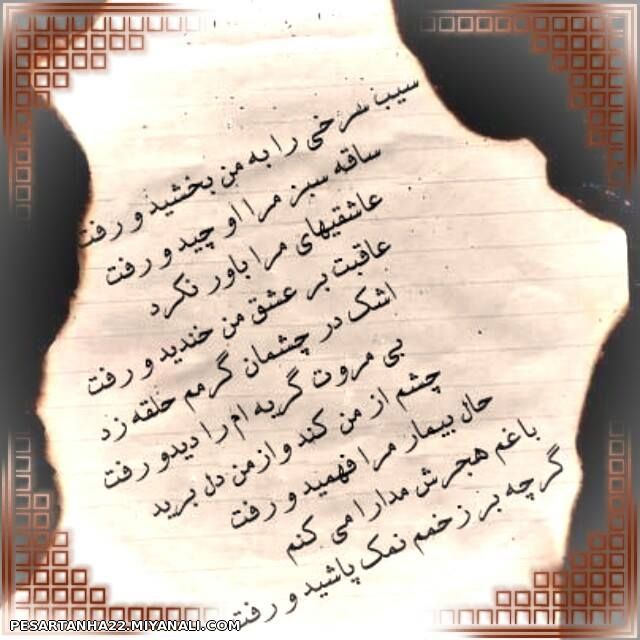 سیب سرخی را به من بخشید و رفت
ساقه سبز مرا او چید و رفت
عاشقیهای مرا باور نکرد
عاقبت بر عشق من خندید و رفت
اشک در چشمان گرمم حلقه زد
بی مروت گریه ام را دید و رفت
چشم از من کند و از من دل برید
حال بیمار مرا فهمید و رفت
با غم هجرش مدارا می کنم
گر چه بر زخمم نمک پاشید و رفت
PESARTANHA22.MIYANALI.COM